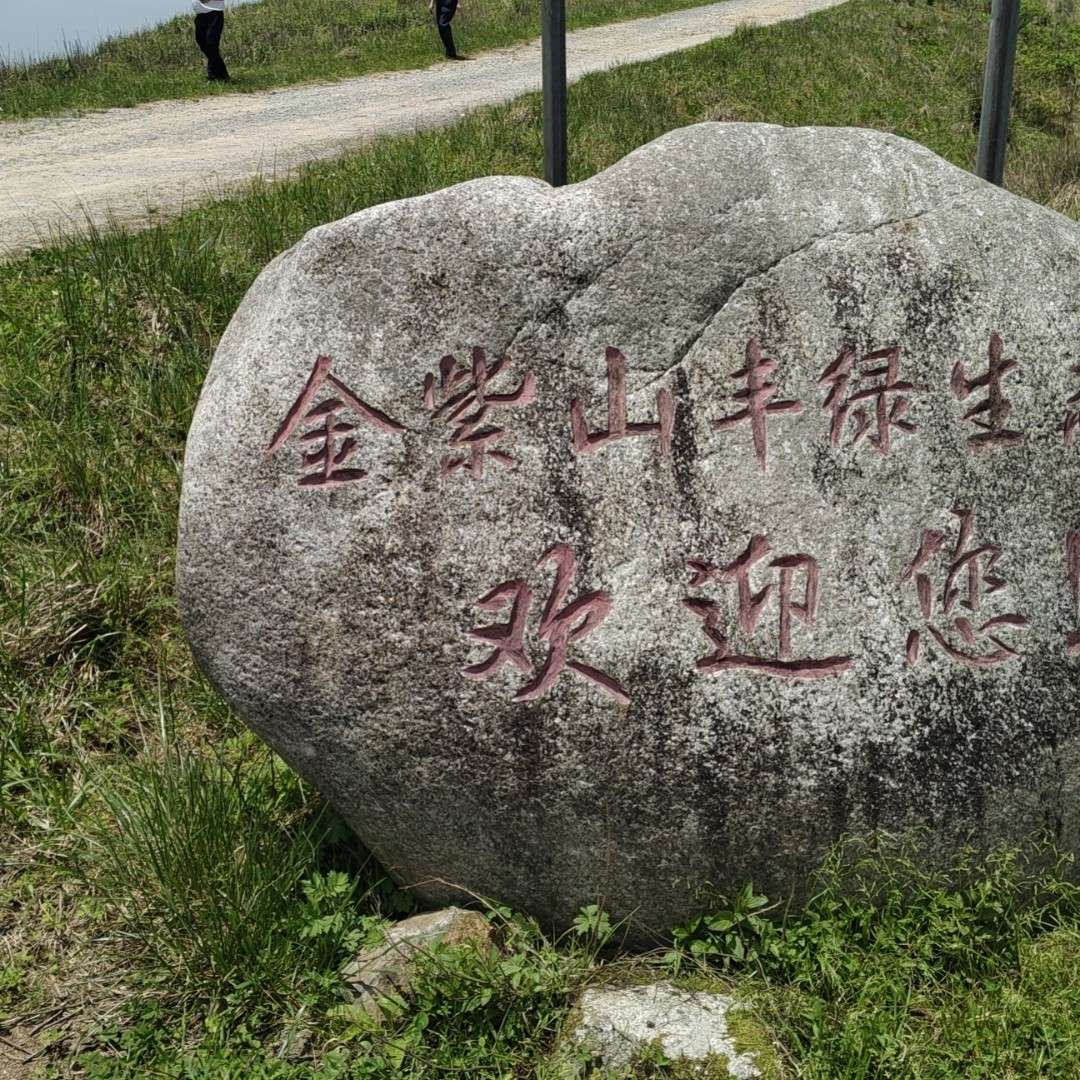 金紫山丰绿生
欢迎您